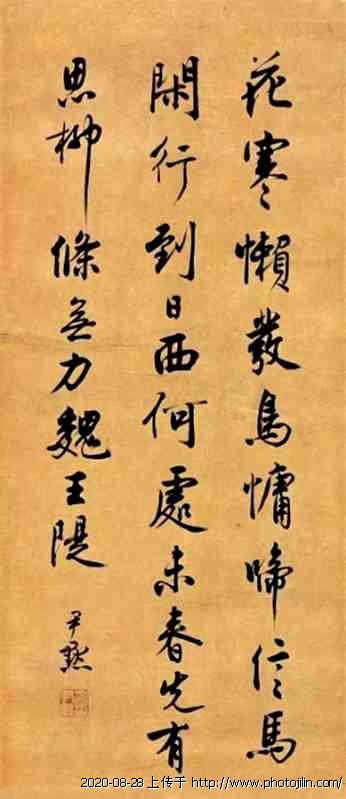 花寒懶發鳥慵啼信馬
閑行到日西何處未春先有
思柳條無力魏王隄
尹默
2020-08-28 上传于 http://www.photojilin.com/